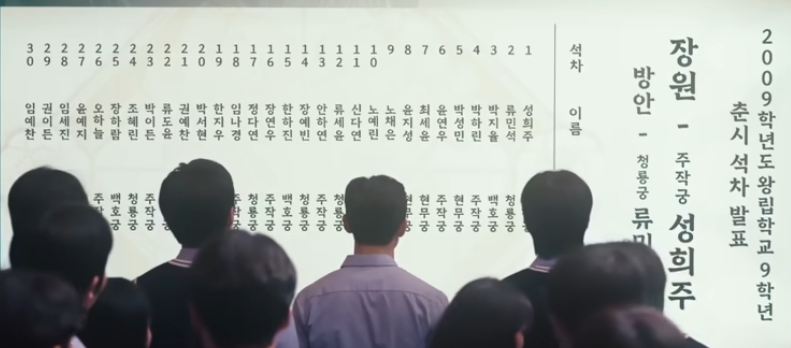 2009학년도 왕립학교 9학년
춘시 석차 발표
장원 - 주작궁 성희주
방안 - 청룡궁 류민
석차 이름
1 성희주
2 류민석 청룡궁
3 박지율 백호궁
4 박하린 주작궁
5 박성민 현무궁
6 윤연우 주작궁
7 최세윤 현무궁
8 윤지성 현무궁
9 노채은
10 노예린
11 신다연
12 류세윤 청룡궁
13 안하연 주작궁
14 장예빈 청룡궁
15 한하진 백호궁
16 장연우 주작궁
17 정다연 청룡궁
18 임나경 주작궁
19 한지우
20 박서현
21 권예찬
22 류도윤
23 박이든 청룡궁
24 조혜린 주작궁
25 장하람 백호궁
26 오하늘 주작궁
27 윤예지
28 임세진
29 권이든
30 임예찬